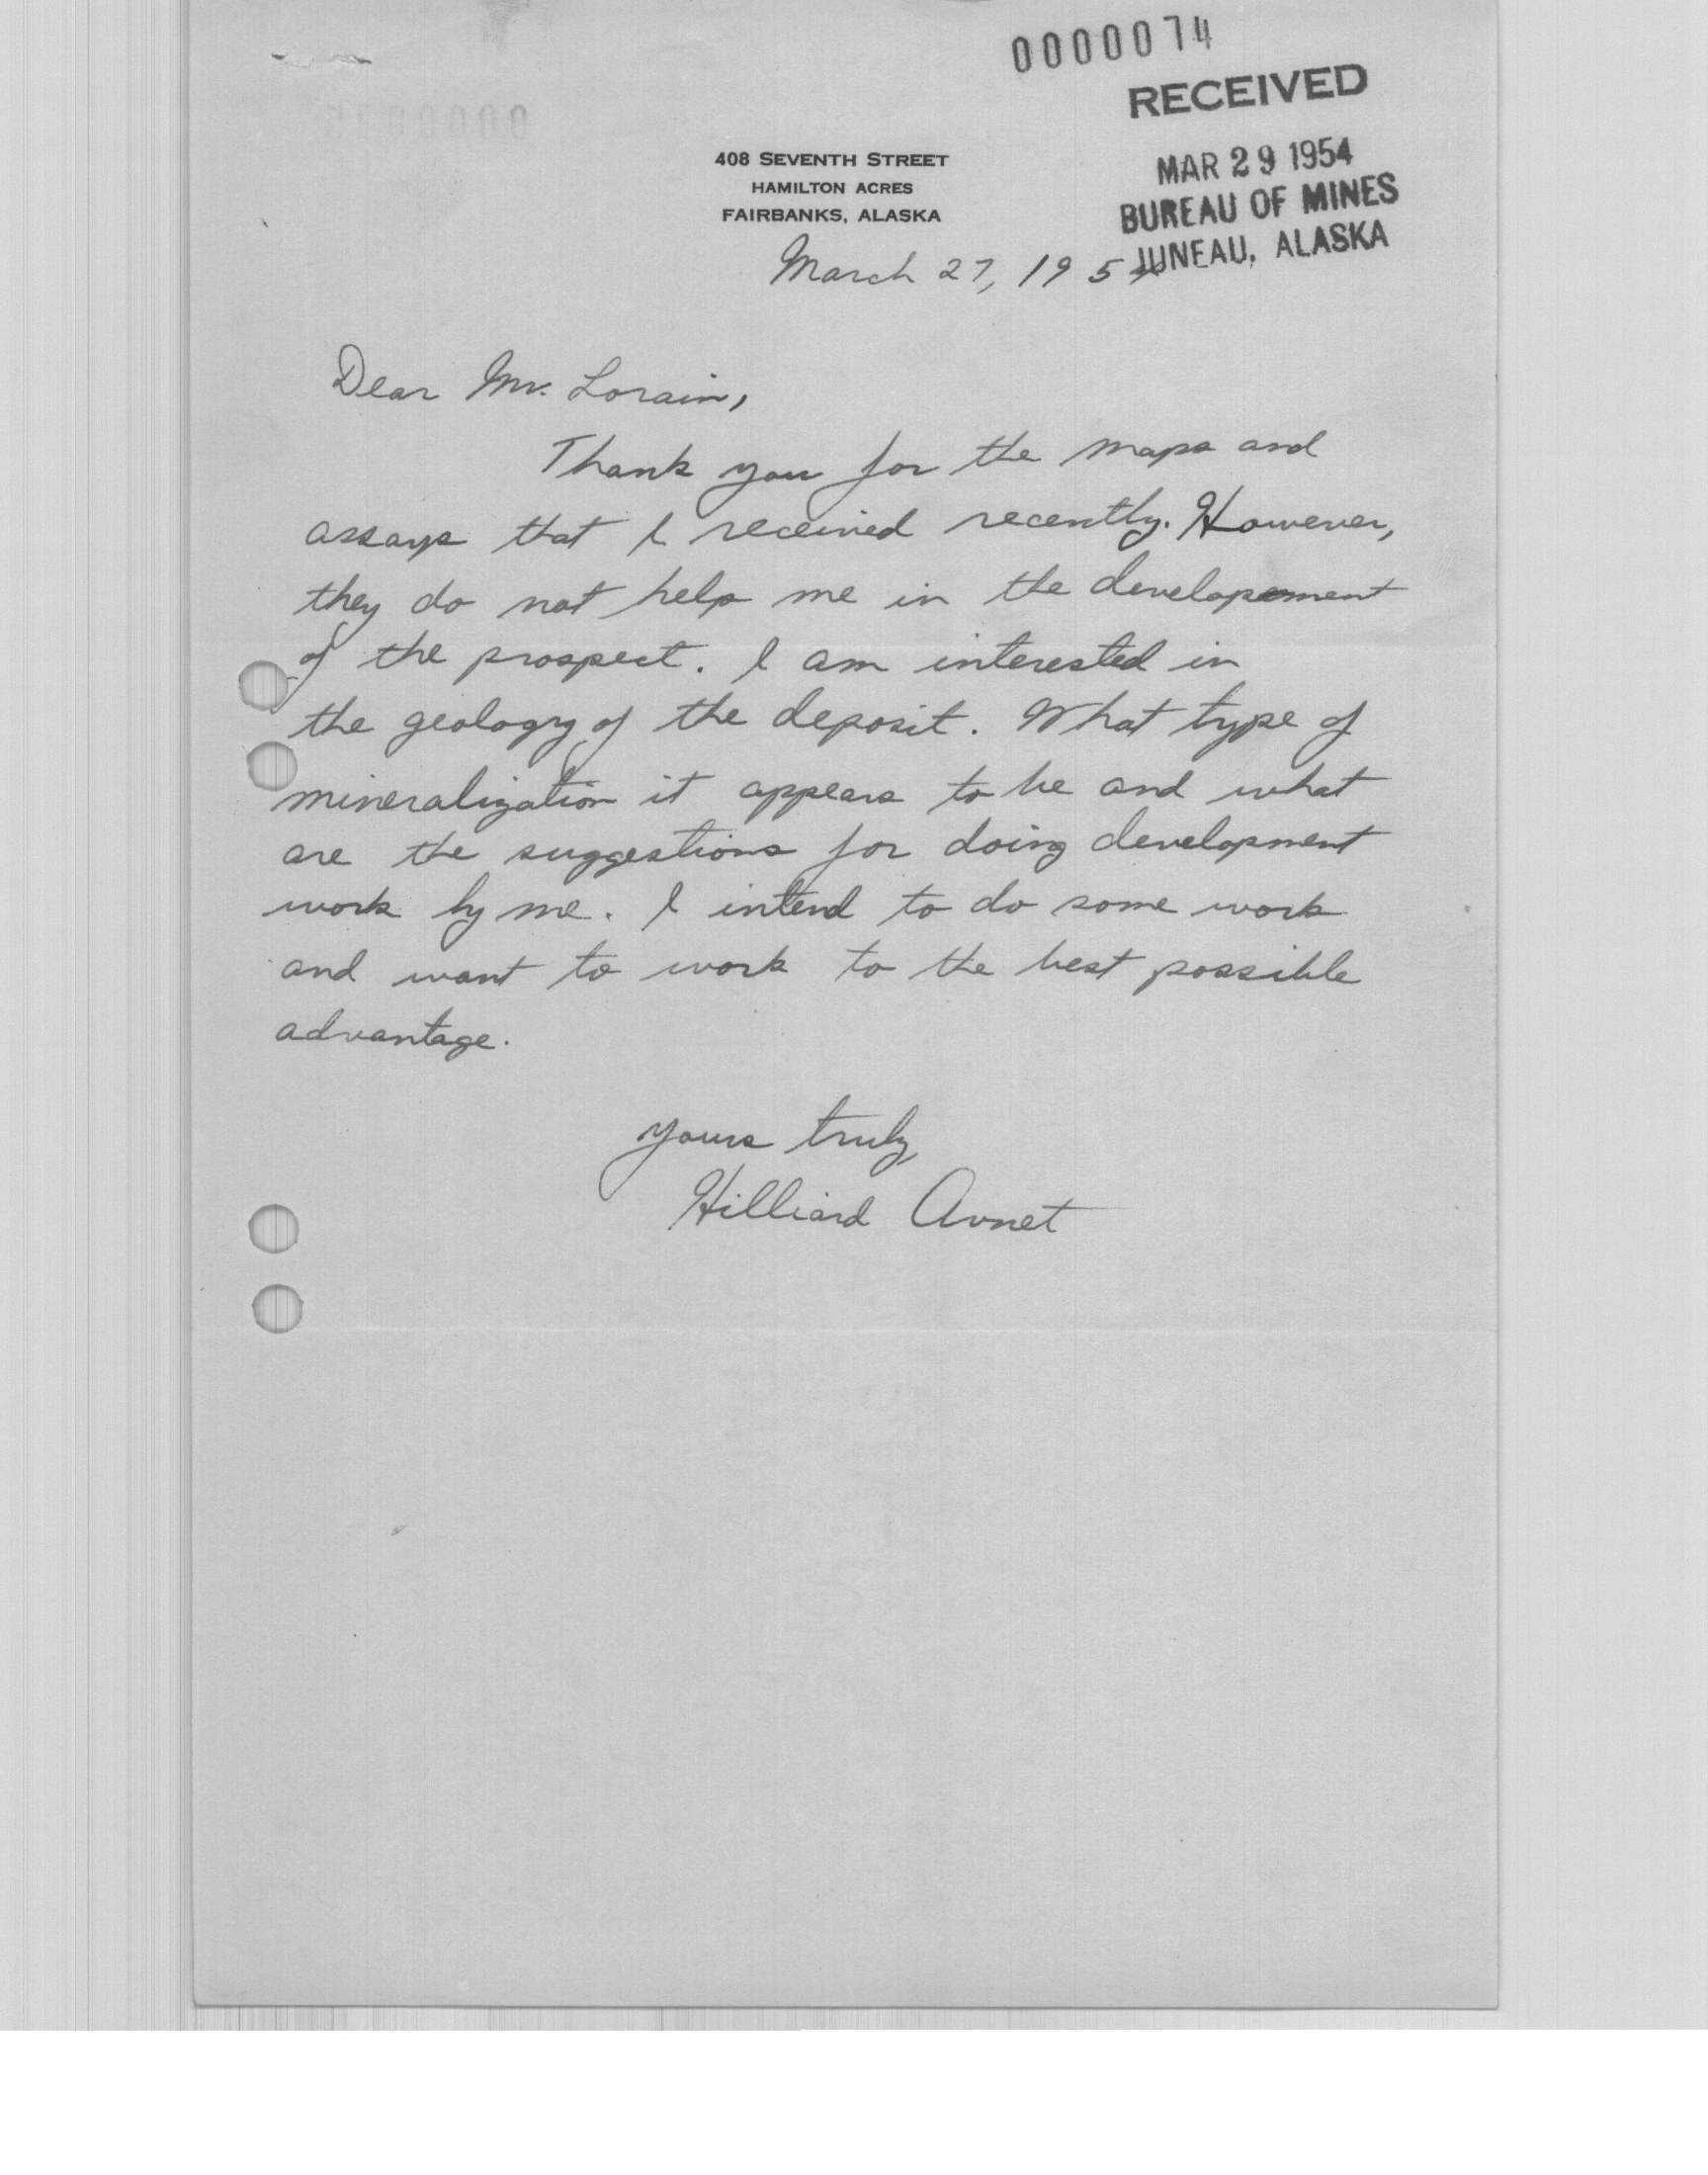 0000074
RECEIVED
MAR 29 1954
BUREAU OF MINES
JUNEAU, ALASKA
408 SEVENTH STREET
HAMILTON ACRES
FAIRBANKS, ALASKA
March 27, 1954
Dear Mr. Lorain,
Thank you for the maps and
assays that I received recently. However,
they do not help me in the developement
of the prospect. I am interested in
the geology of the deposit. What type of
mineralization it appears to be and what
are the suggestions for doing development
work by me. I intend to do some work
and want to work to the best possible
advantage.
Yours truly,
Hilliard Avnet